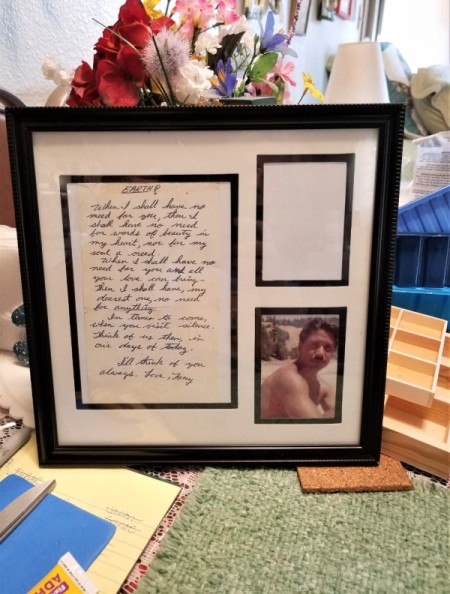 EARTH
When I shall have no
need for you, then I
shall have no need
for words of beauty in
my heart, nor for my
soul a creed.
When I shall have no
need for you and all
your love can bring.
Then I shall have, my
dearest one, no need
for anything.
In times to come,
when you visit silence.
Think of us then, in
our days of today.
I'll think of you
always. Love,